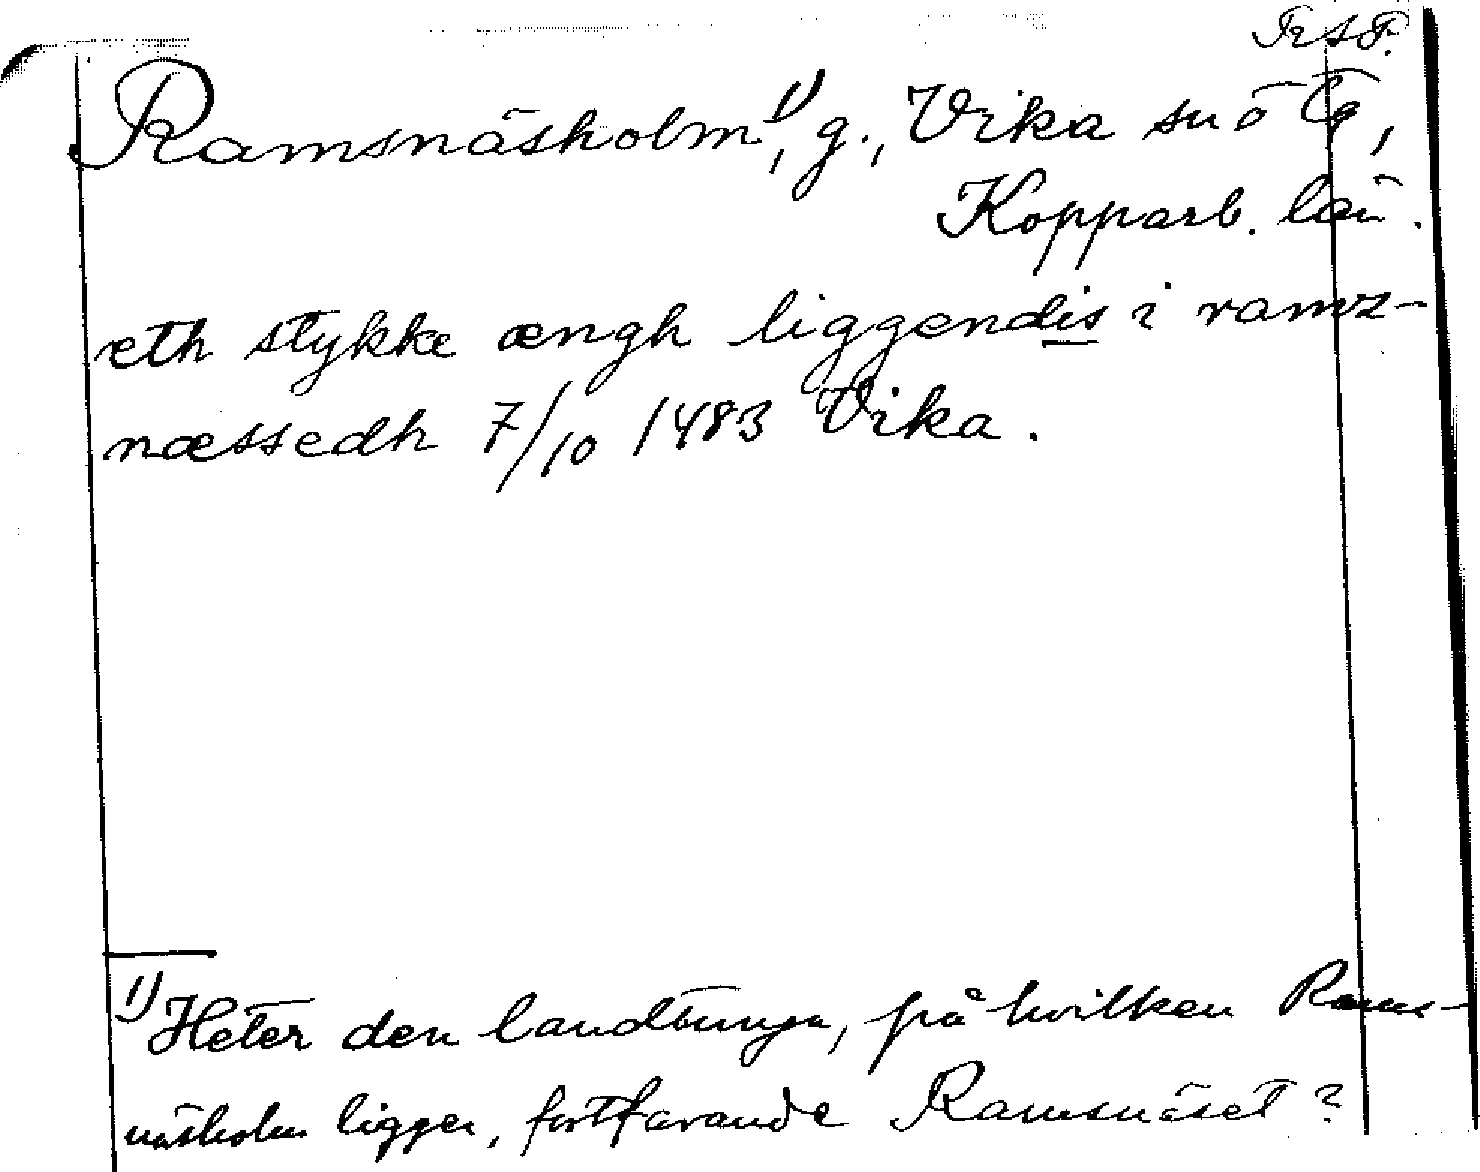 Ramsnäsholm,¹⁾ g., Vika snö
Kopparb. län.
eth stykke ængh liggendis i ramz-
næssedh 7/10 1483 Vika.
¹⁾ Heter den landtunga, på hvilken Rams-
näsholm ligger, fortfarande Ramsnäset?